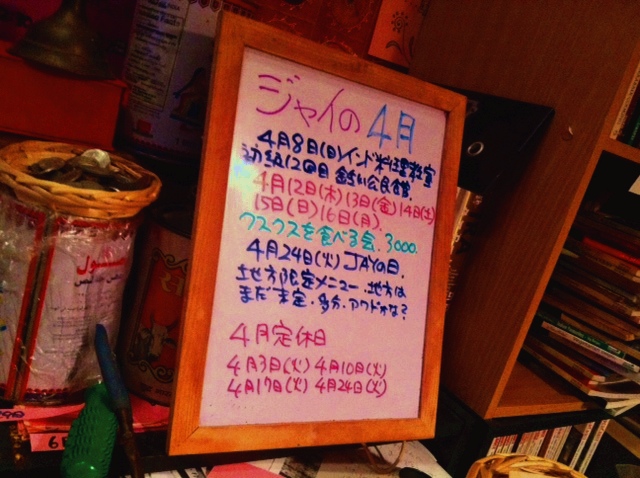 ジャイの4月
4月8日(日)インド料理教室
初級12回目 公民館.
4月12日(木)13日(金)14日(土)
15日(日)16日(月)
クスクスを食べる会. 3000.
4月24日(火)JAYの日.
地方限定メニュー.地方は
まだ未定.多分.アワドかな?
4月定休日
4月3日(火) 4月10日(火)
4月17日(火) 4月24日(火)